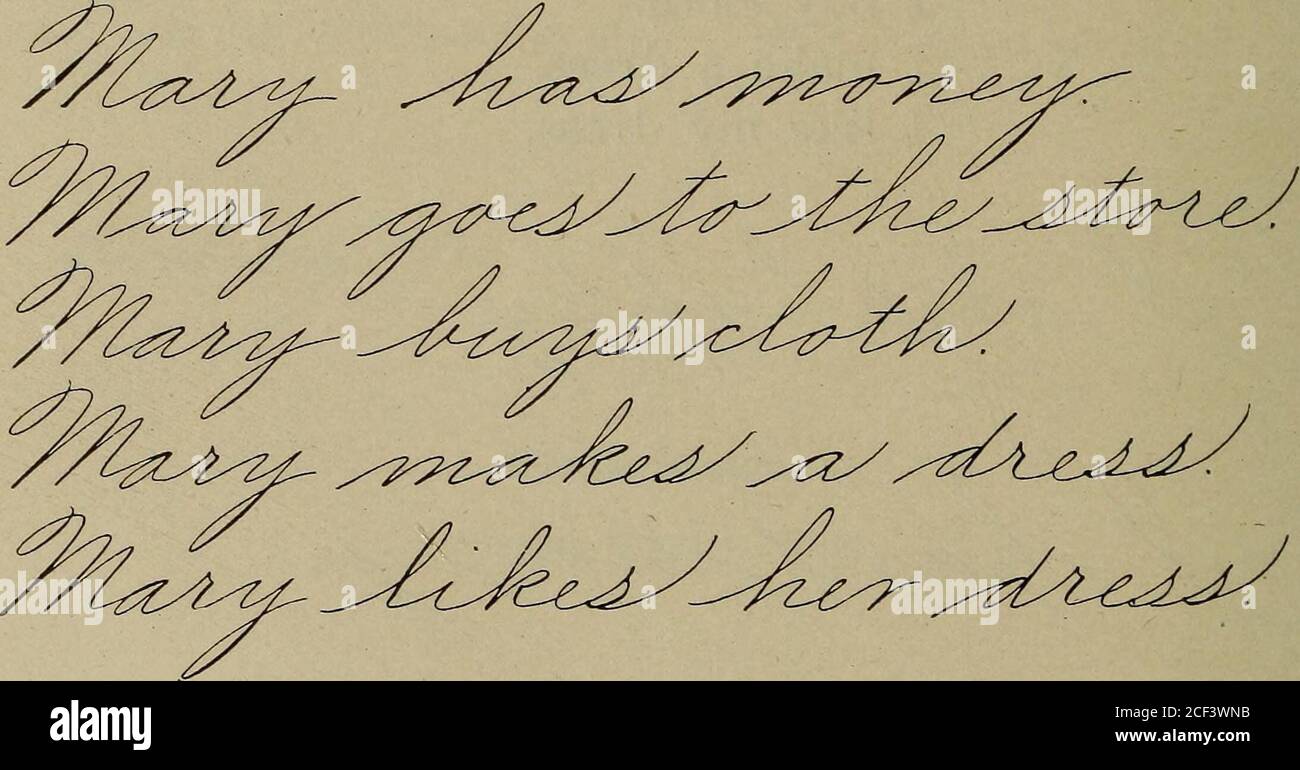 Mary has money.
Mary goes to the store.
Mary buys cloth.
Mary makes a dress.
Mary likes her dress.
alamy
Image ID: 2CF3WNB
www.alamy.com